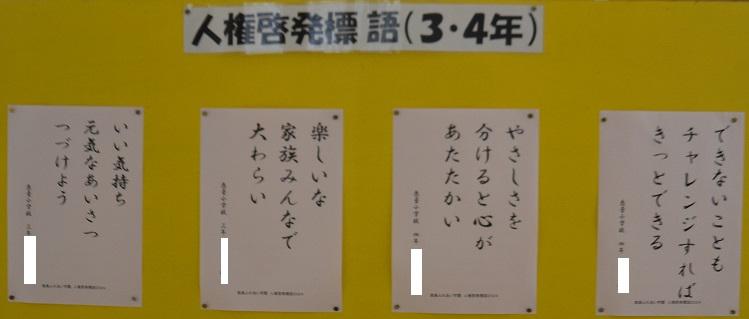 人権啓発標語(3・4年)
できないことも
チャレンジすれば
きっとできる
やさしさを
分けると心が
あたたかい
楽しいな
家族みんなで
大わらい
いい気持ち
元気なあいさつ
つづけよう